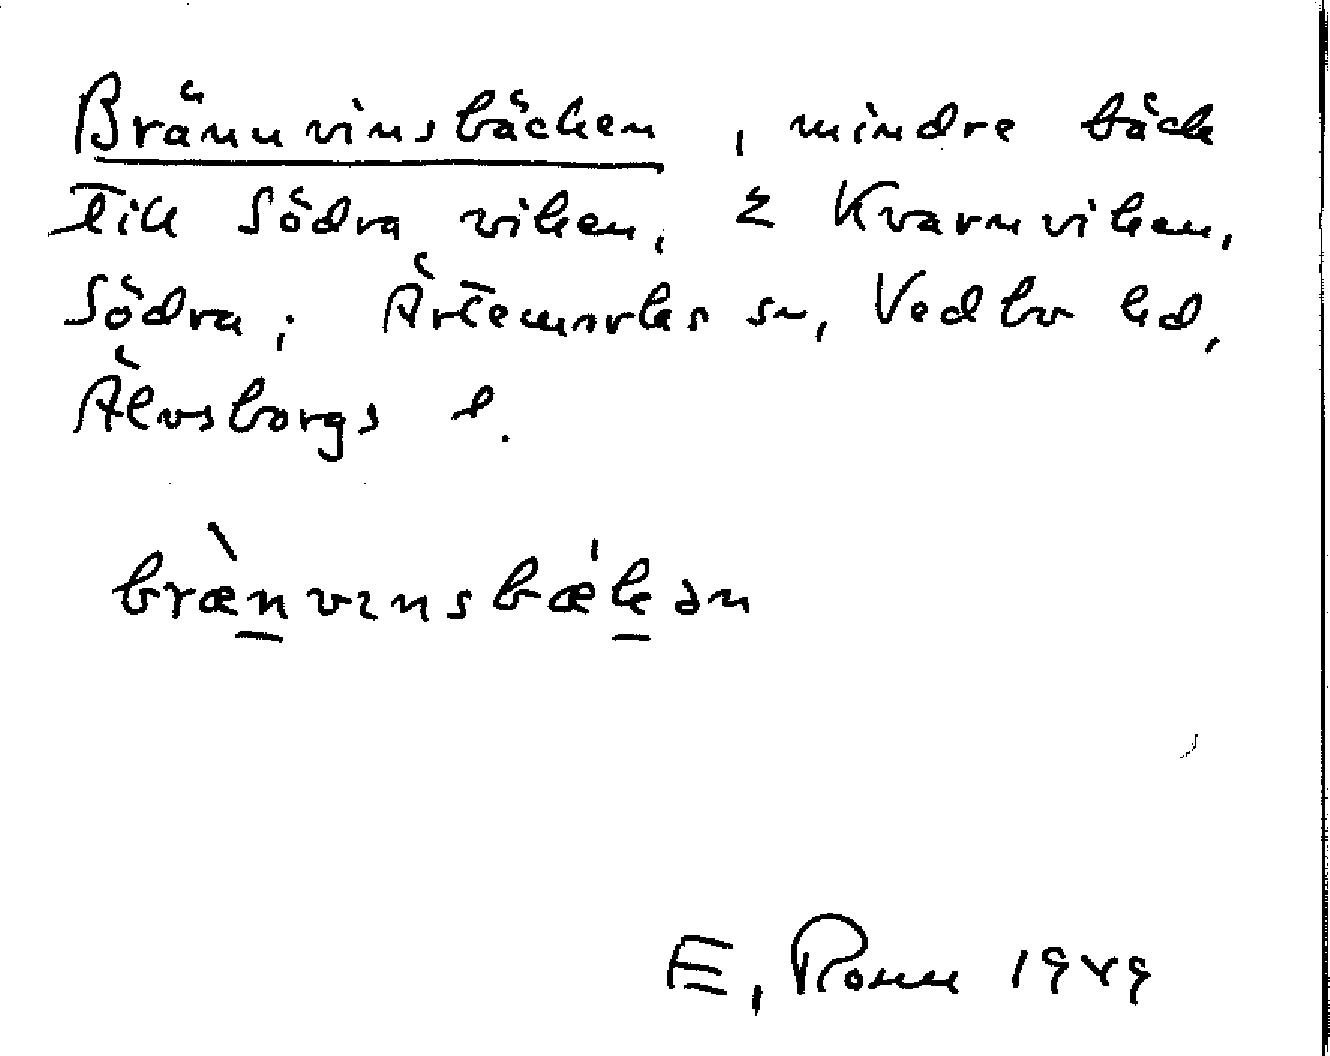 Brännvinsbäcken, mindre bäck
till Södra viken, = Kvarnviken,
Södra; Ärtemarks sn, Vedbo hd,
Älvsborgs l.
bræ̀nvɪnsbæ̀kən
E. Ronn 1949